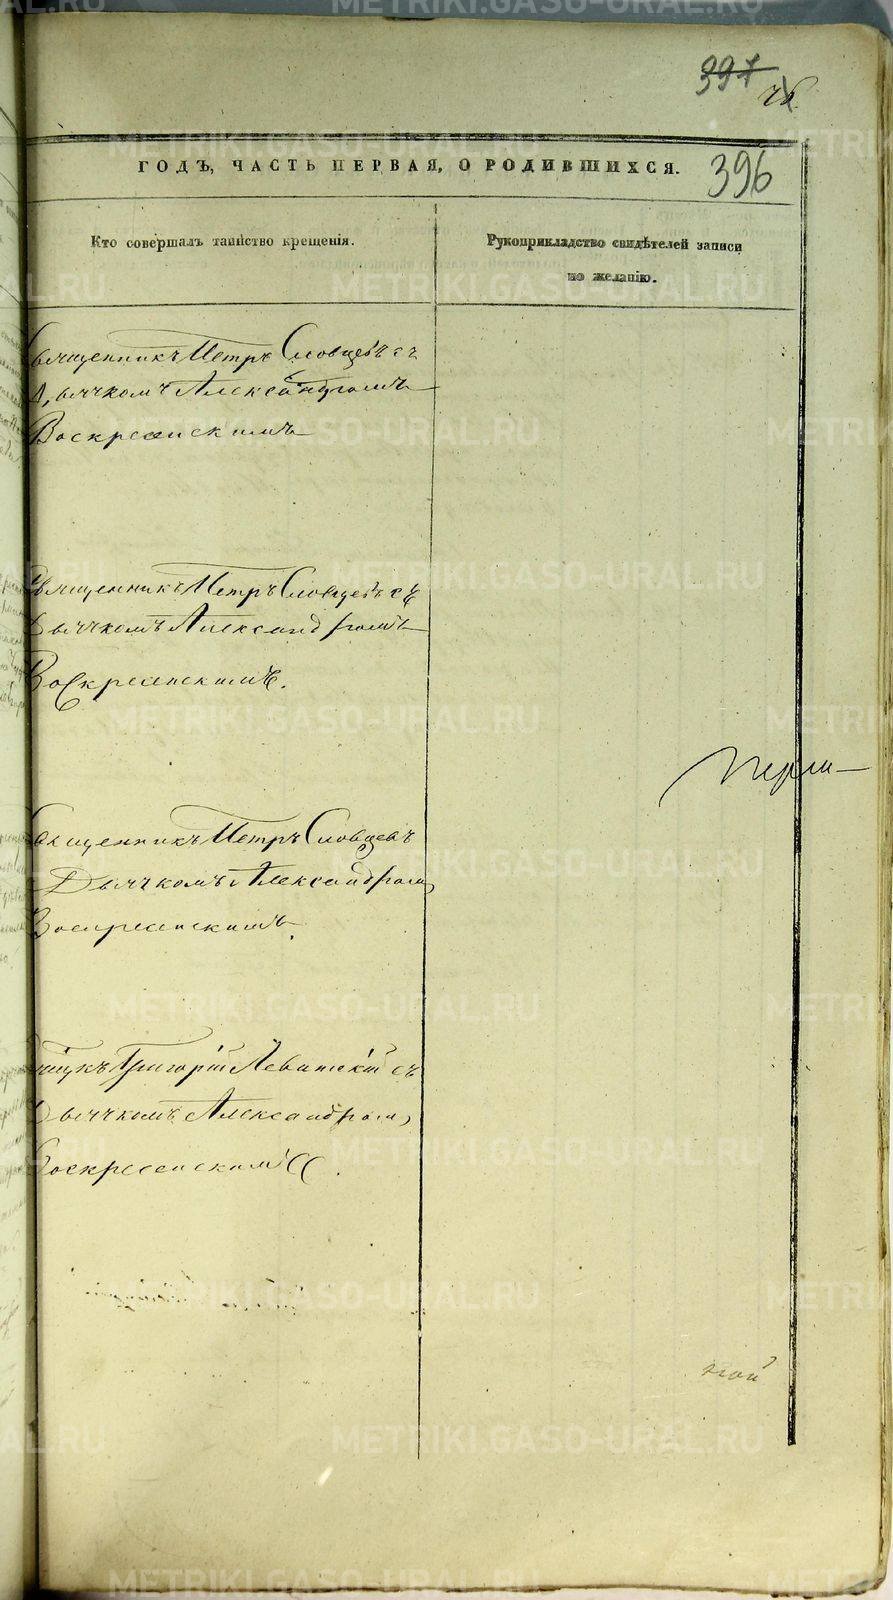 397
ГОДЪ, ЧАСТЬ ПЕРВАЯ, О РОДИВШИХСЯ.
396
Кто совершалъ таинство крещенія.
Рукоприкладство свидѣтелей записи
по желанію.
Священникъ Петръ Словцевъ съ
Дьячкомъ Александромъ
Воскресенскимъ
Священникъ Петръ Словцевъ съ
Дьячкомъ Александромъ
Воскресенскимъ.
Священникъ Петръ Словцевъ
Дьячкомъ Александром
Воскресенскимъ.
Григорій Левитскій съ
Дьячкомъ Александром
Воскресенскимъ.
ной
METRIKI.GASO-URAL.RU